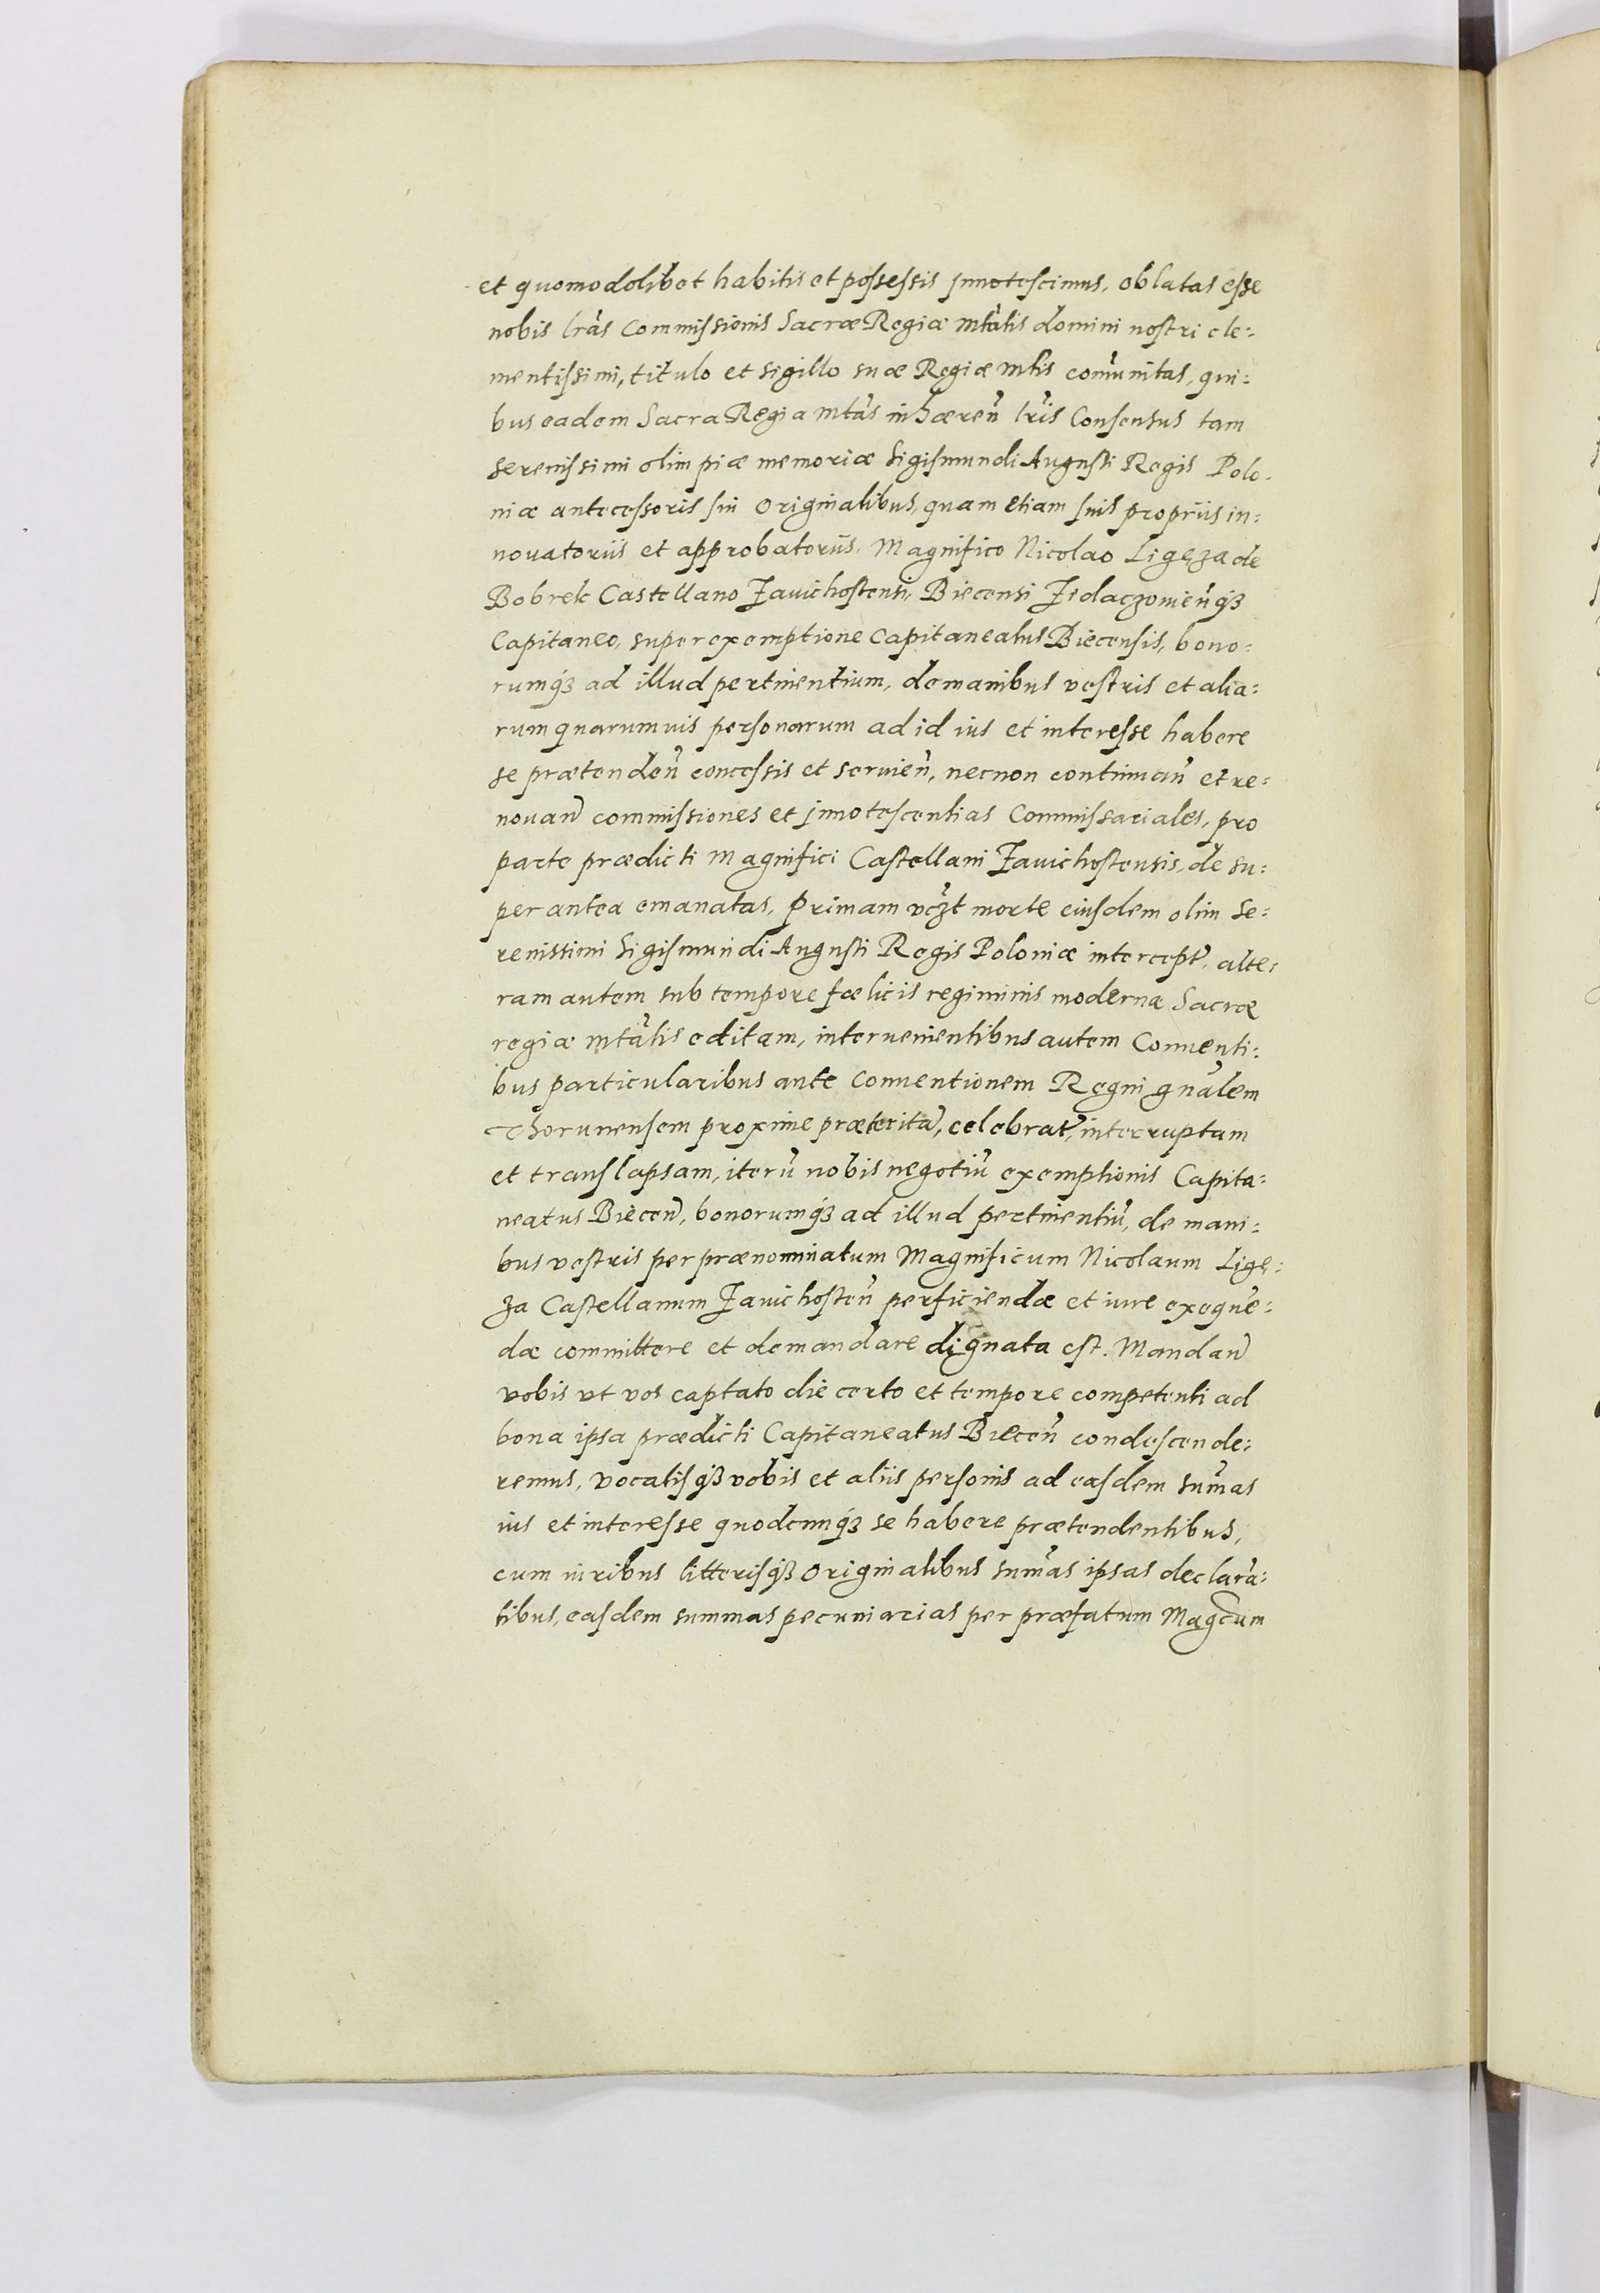 et quomodolibet habitis et possessis innotescimus, oblatas esse
nobis lras Commissionis Sacræ Regiæ Mtatis domini nostri cle:
mentissimi, titulo et sigillo suæ Regiæ Mtis comunitas, qui:
bus eadem Sacra Regia Mtas inhæren lris Consensus tam
serenissimi olim piæ memoriæ Sigismundi Augusti Regis Polo:
niæ antecessoris sui Originalibus, quam etiam suis propriis in:
novatoriis et approbatoriis, Magnifico Nicolao Ligęza de
Bobrek Castellano Zavichostensi, Biecensi Zidaczovienq3
Capitaneo, super exemptione Capitaneatus Biecensis, bono:
rumq3 ad illud pertinentium, de manibus vestris et alia:
rum quarumuis personarum ad id ius et interesse habere
se prætenden concessis et seruien, necnon continuan et re:
nouan commissiones et innotescentias Commissariales, pro
parte prædicti Magnifici Castellani Zavichostensis, de su:
per antea emanatas, Primam vczt morte eiusdem olim Se:
renissimi Sigismundi Augusti Regis Poloniæ intercept, alte:
ram autem sub tempore fœlicis regiminis modernæ Sacræ
regiæ Mtatis editam, interuenientibus autem Conuenti:
bus particularibus ante Conuentionem Regni gnalem
Thorunensem proxime præterita, celebrat, interruptam
et translapsam, iteru nobis negotiu exemptionis Capita:
neatus Biecen, bonorumq3 ad illud pertinentiu, de mani:
bus vestris per prænominatum Magnificum Nicolaum Lige:
za Castellanum Zavichosten perficiendæ et iure exeque:
dæ committere et demandare dignata est. Mandan
vobis ut vos captato die certo et tempore competenti ad
bona ipsa prædicti Capitaneatus Biecen condescende:
remus, vocatisq3 vobis et aliis personis ad easdem sumas
ius et interesse quodcunq3 se habere prætendentibus,
cum iuribus litterisq3 Originalibus sumas ipsas declara:
tibus, easdem summas pecuniarias per præfatum Magcum